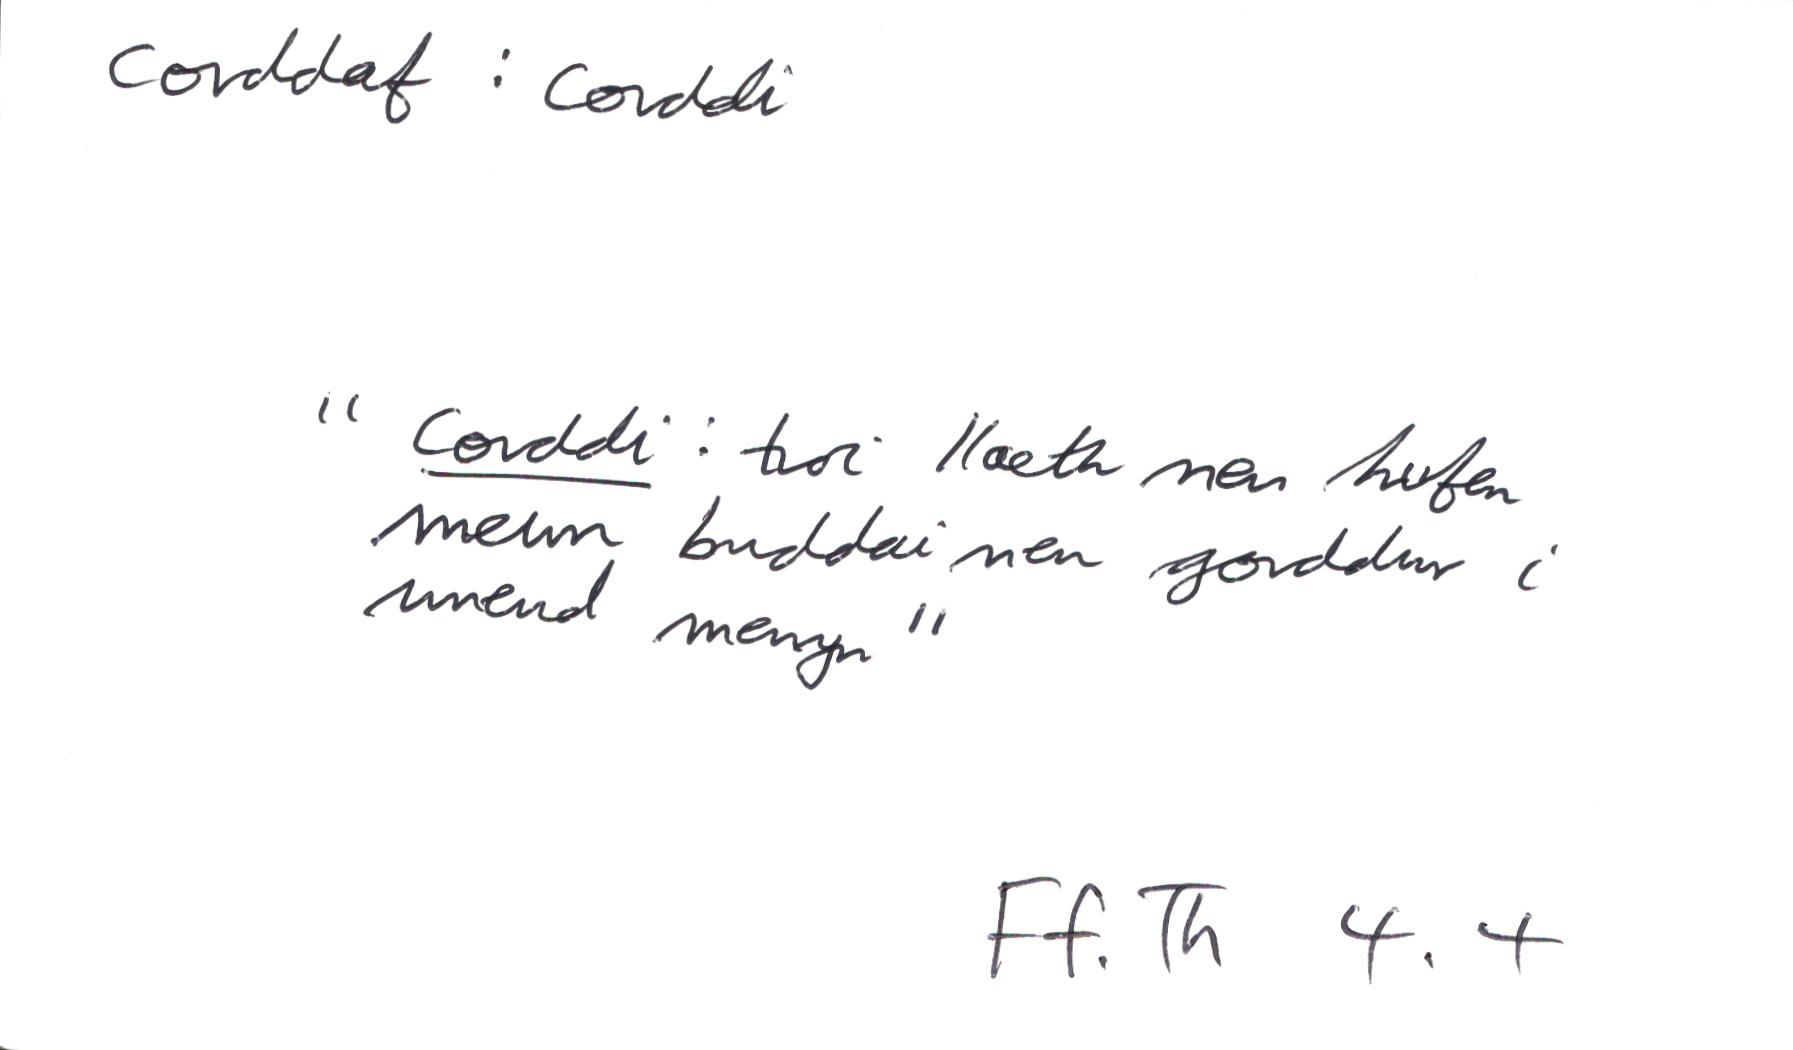 corddaf : corddi
"Corddi : troi llaeth neu hufen
mewn buddai neu gorddwr i
wneud menyn"
Ff. Th 4. 4